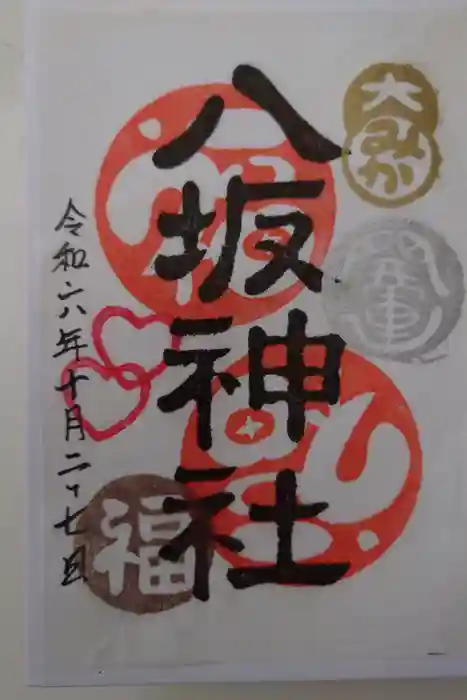 八坂神社
大みか
令和六年十月二十七日
福